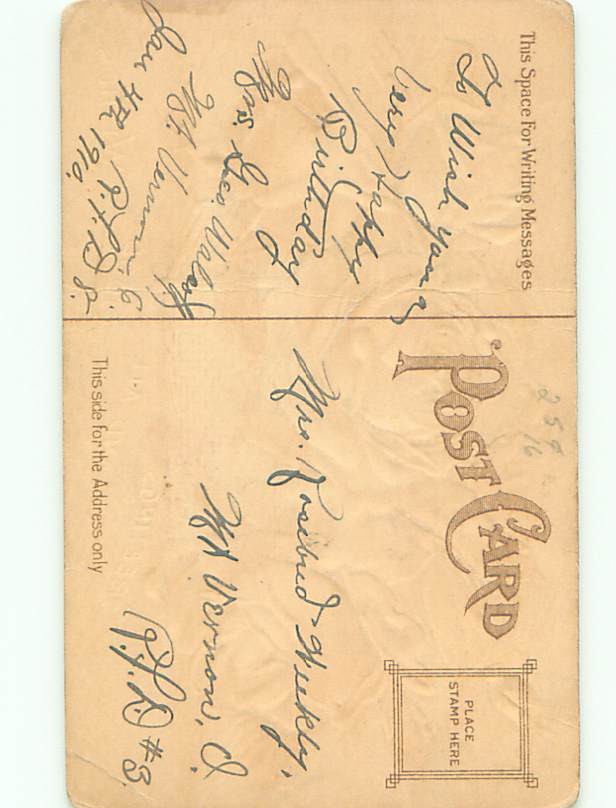 This Space For Writing Messages
To Wish you a
Very Happy
Birthday
Mrs. Geo.
Mt. Vernon, O.
R.F.D. 8.
Jan 4th 1910.
POST CARD
259
16
PLACE
STAMP HERE
Mrs. Rosebud Weekly,
Mt Vernon, O.
R.F.D #3.
This side for the Address only